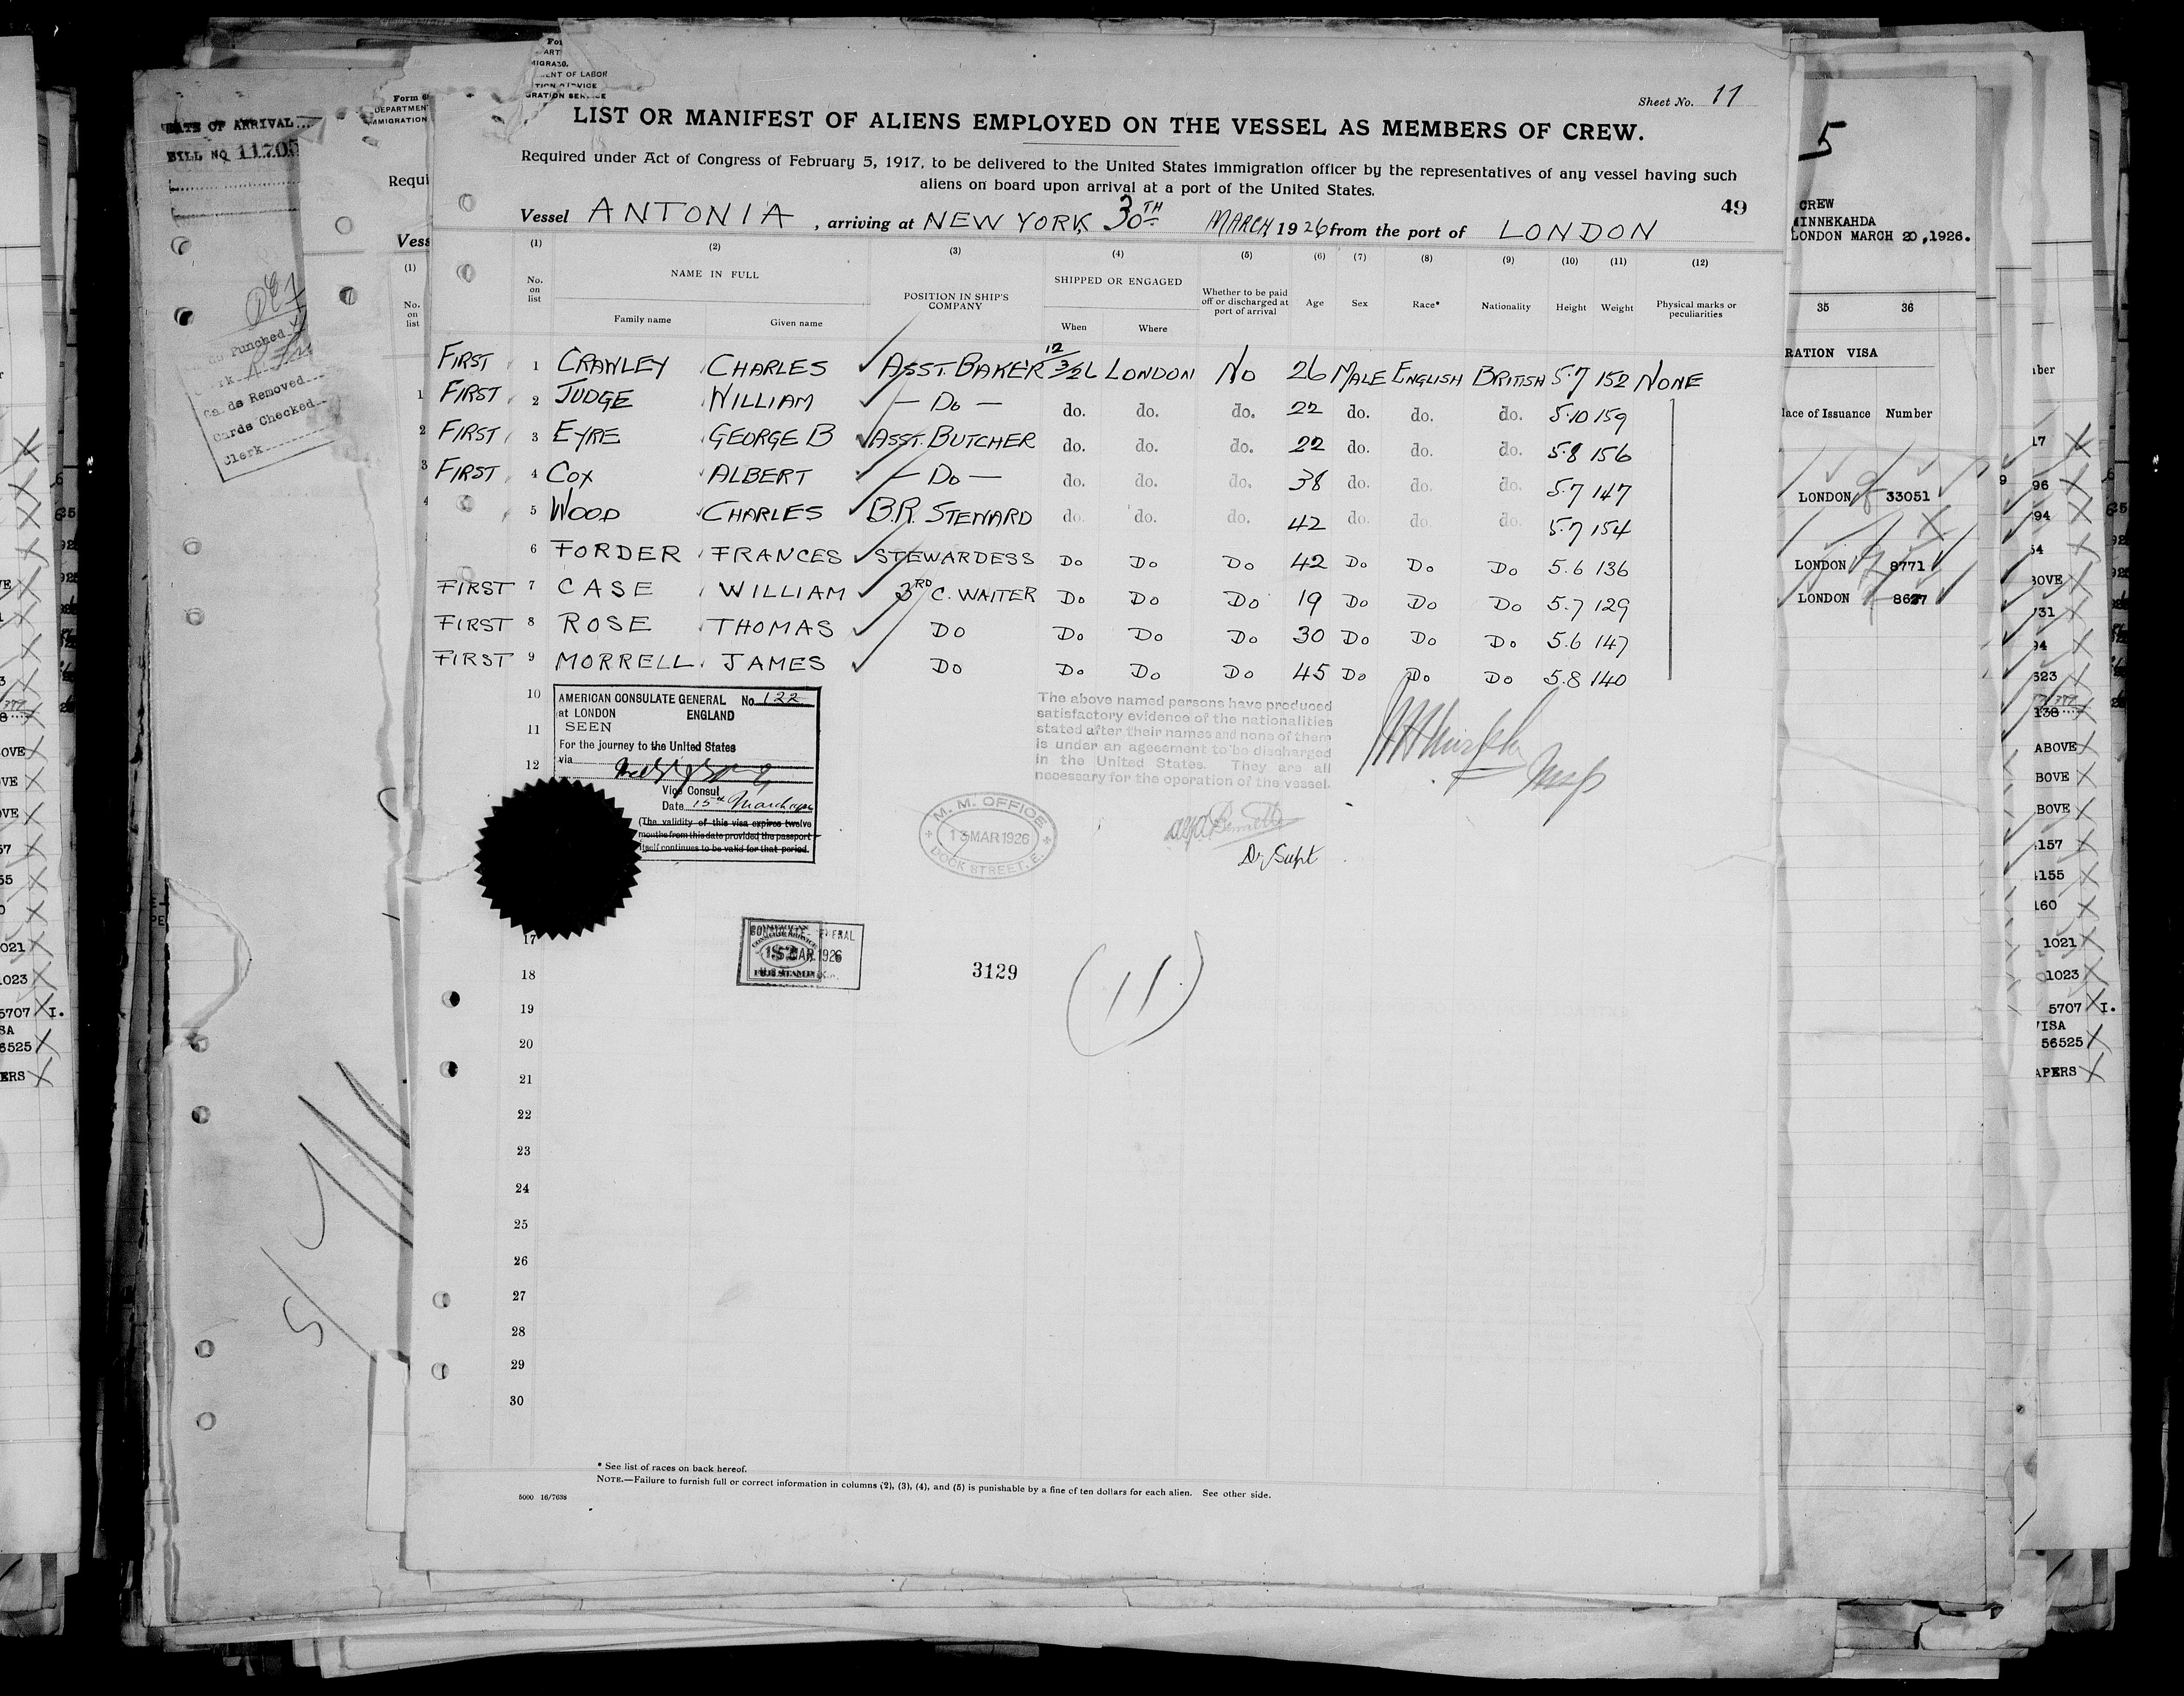 Sheet No. 11
LIST OR MANIFEST OF ALIENS EMPLOYED ON THE VESSEL AS MEMBERS OF CREW.
Required under Act of Congress of February 5, 1917, to be delivered to the United States immigration officer by the representatives of any vessel having such
aliens on board upon arrival at a port of the United States.
49
Vessel ANTONIA, arriving at NEW YORK, 30TH MARCH 1926 from the port of LONDON
(1) (2) (3) (4) (5) (6) (7) (8) (9) (10) (11) (12)
No. on list NAME IN FULL Family name Given name POSITION IN SHIP'S COMPANY SHIPPED OR ENGAGED When Where Whether to be paid off or discharged at port of arrival Age Sex Race* Nationality Height Weight Physical marks or peculiarities
FIRST 1 CRAWLEY CHARLES ASST. BAKER 12/3/26 LONDON NO 26 MALE ENGLISH BRITISH 5.7 152 NONE
FIRST 2 JUDGE WILLIAM — DO — do. do. do. 22 do. do. do. 5.10 159
FIRST 3 EYRE GEORGE B ASST. BUTCHER do. do. do. 22 do. do. do. 5.8 156
FIRST 4 COX ALBERT — DO — do. do. do. 38 do. do. do. 5.7 147
5 WOOD CHARLES B.R. STEWARD do. do. do. 42 do. do. do. 5.7 154
6 FORDER FRANCES STEWARDESS DO DO DO 42 DO DO DO 5.6 136
FIRST 7 CASE WILLIAM 3RD C. WAITER DO DO DO 19 DO DO DO 5.7 129
FIRST 8 ROSE THOMAS DO DO DO DO 30 DO DO DO 5.6 147
FIRST 9 MORRELL JAMES DO DO DO DO 45 DO DO DO 5.8 140
10
11
12
AMERICAN CONSULATE GENERAL No. 122
at LONDON ENGLAND
SEEN
For the journey to the United States
via
Vice Consul
Date 15th March 1926
(The validity of this visa expires twelve
months from this date provided the passport
itself continues to be valid for that period.
The above named persons have produced
satisfactory evidence of the nationalities
stated after their names and none of them
is under an ageement to be discharged
in the United States. They are all
necessary for the operation of the vessel.
M. M. OFFICE
13 MAR 1926
DOCK STREET, E.
Dy Supt
MAR 1926
3129
(11)
17
18
19
20
21
22
23
24
25
26
27
28
29
30
* See list of races on back hereof.
NOTE.—Failure to furnish full or correct information in columns (2), (3), (4), and (5) is punishable by a fine of ten dollars for each alien. See other side.
5000 16/7638
DATE OF ARRIVAL
BILL NO 11705
Cards Removed
Cards Checked
Clerk
5
CREW
MINNEKAHDA
LONDON MARCH 20, 1926.
35 36
RATION VISA
lace of Issuance Number
LONDON 33051
LONDON 8771
LONDON 8627